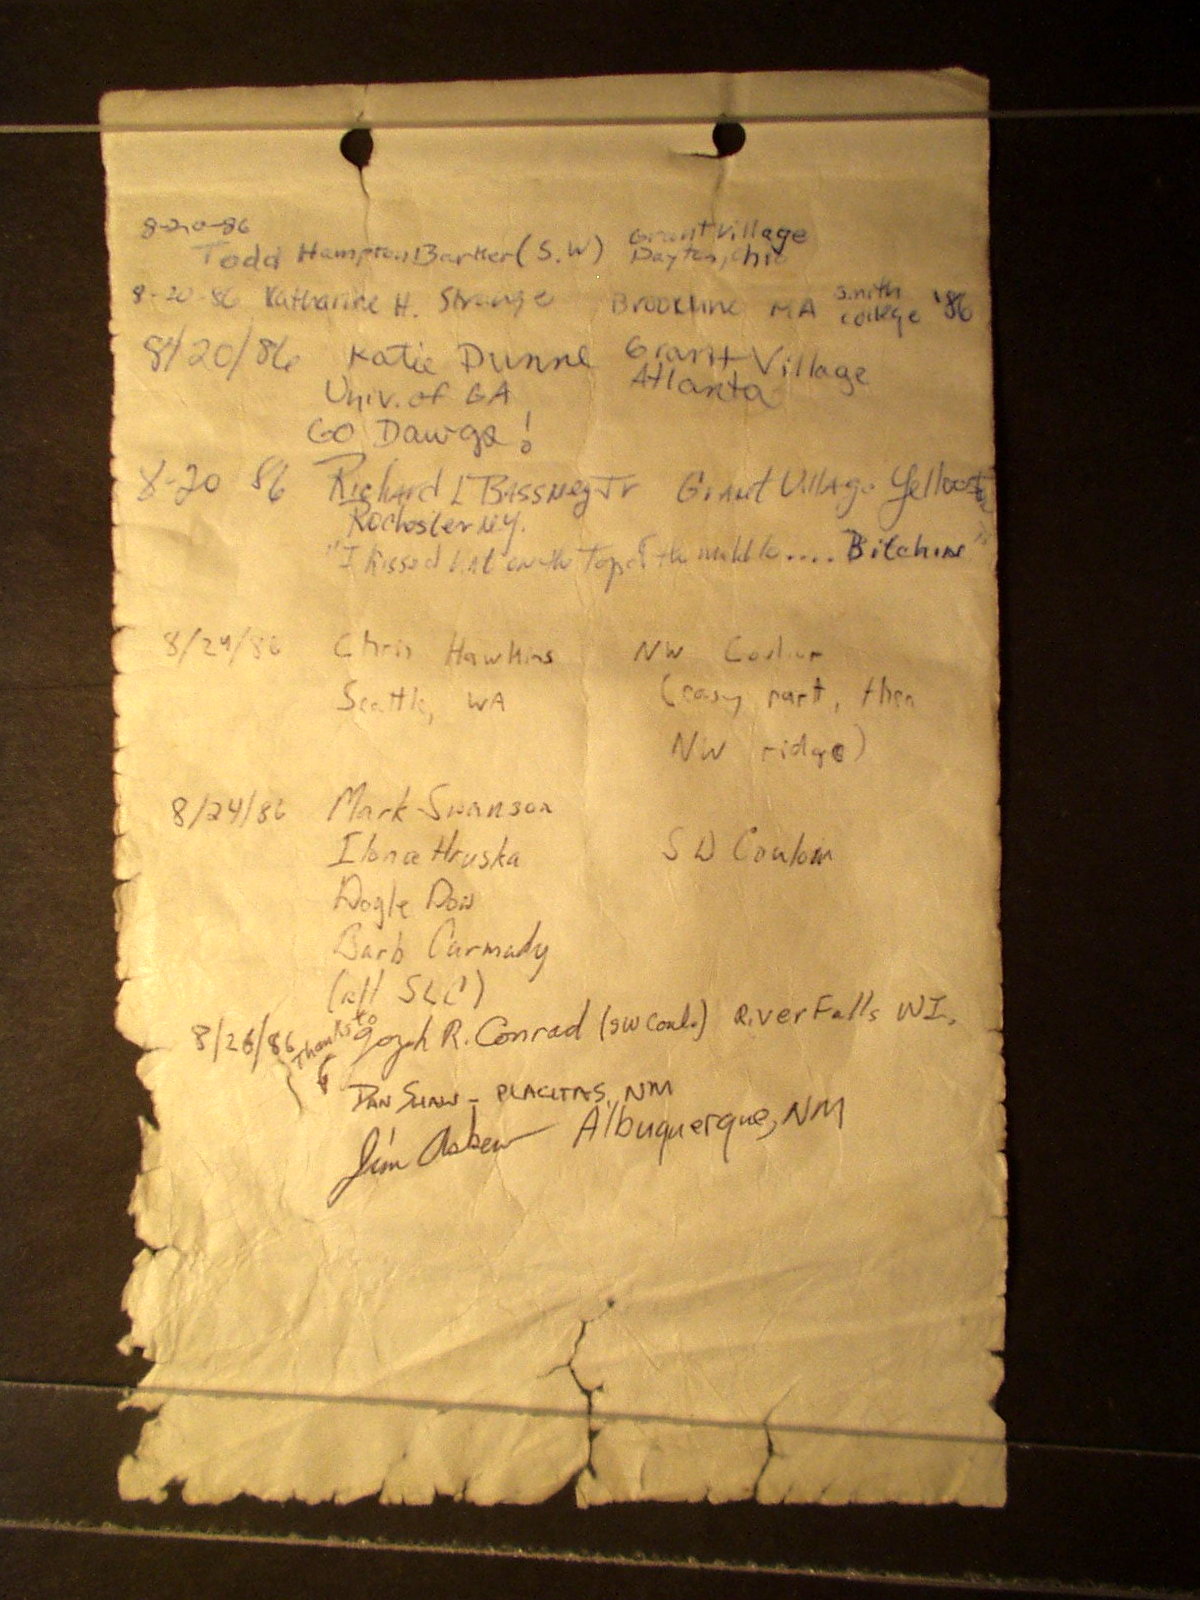 8-20-86
Todd Hampton Barker (S.W) Grant Village
Dayton, Ohio
8-20-86 Katharine H. Strange Brookline MA Smith
college '86
8/20/86 Katie Dunne Grant Village
Univ. of GA Atlanta
GO Dawgs!
8-20 86 Richard L Jr Grant Village
Rochester NY.
"I kissed on the Top of the .... Bitchin"
8/24/86 Chris Hawkins NW Couloir
Seattle, WA (easy part, then
NW ridge)
8/24/86 Mark Swanson
Ilona Hruska Couloir
Dow
Barb Carmady
(all SLC)
8/26/86 Thanks to Joseph R. Conrad (SW Coul.) River Falls WI.
DAN SHAW - PLACITAS, NM
Jim Askew Albuquerque, NM